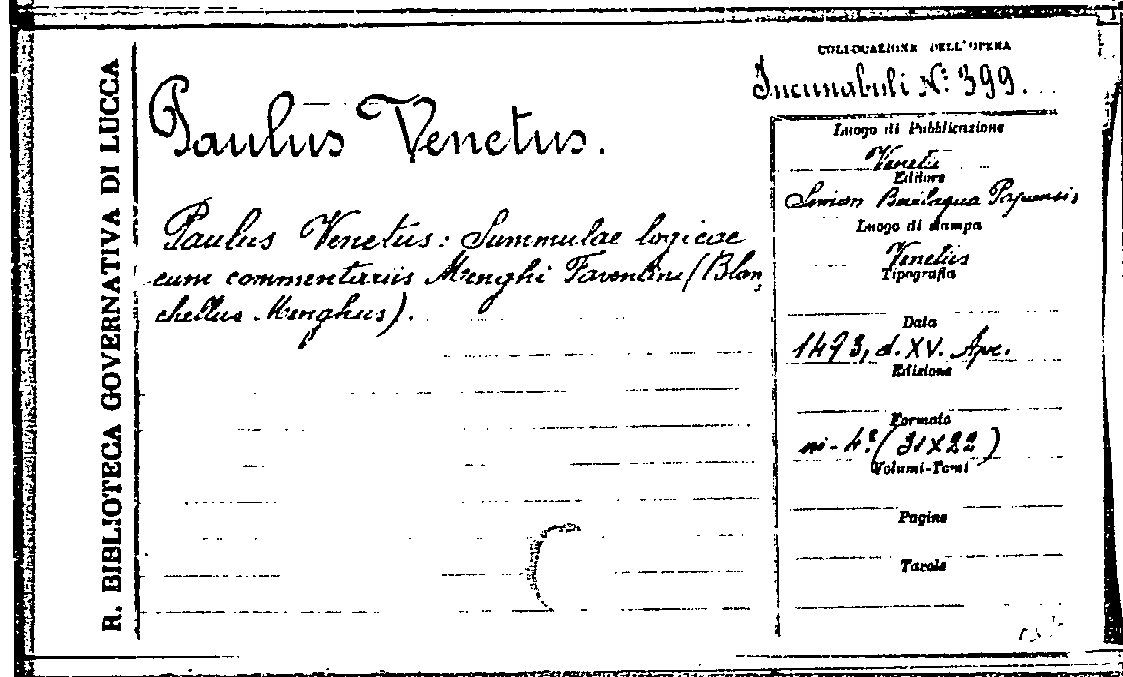 R. BIBLIOTECA GOVERNATIVA DI LUCCA
COLLOCAZIONE DELL'OPERA
Incunabuli N.: 399.
Paulus Venetus.
Paulus Venetus: Summulae logicae
cum commentariis Menghi Faventini (Blan,
chellus Menghus).
Luogo di Pubblicazione
Editore
Simon Bevilaqua Papiensis
Luogo di stampa
Venetiis
Tipografia
Data
1493, d. XV. Apr.
Edizione
Formato
in-4.° (31x22)
Volumi-Tomi
Pagine
Tavole